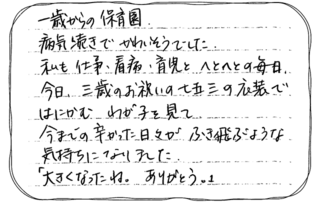 一歳からの保育園.
病気続きでかわいそうでした.
私も仕事・看病・育児とへとへとの毎日.
今日、三歳のお祝いの七五三の衣装で
はにかむ わが子を見て
今までの辛かった日々が ふき飛ぶような
気持ちになりました.
「大きくなったね。 ありがとう。」